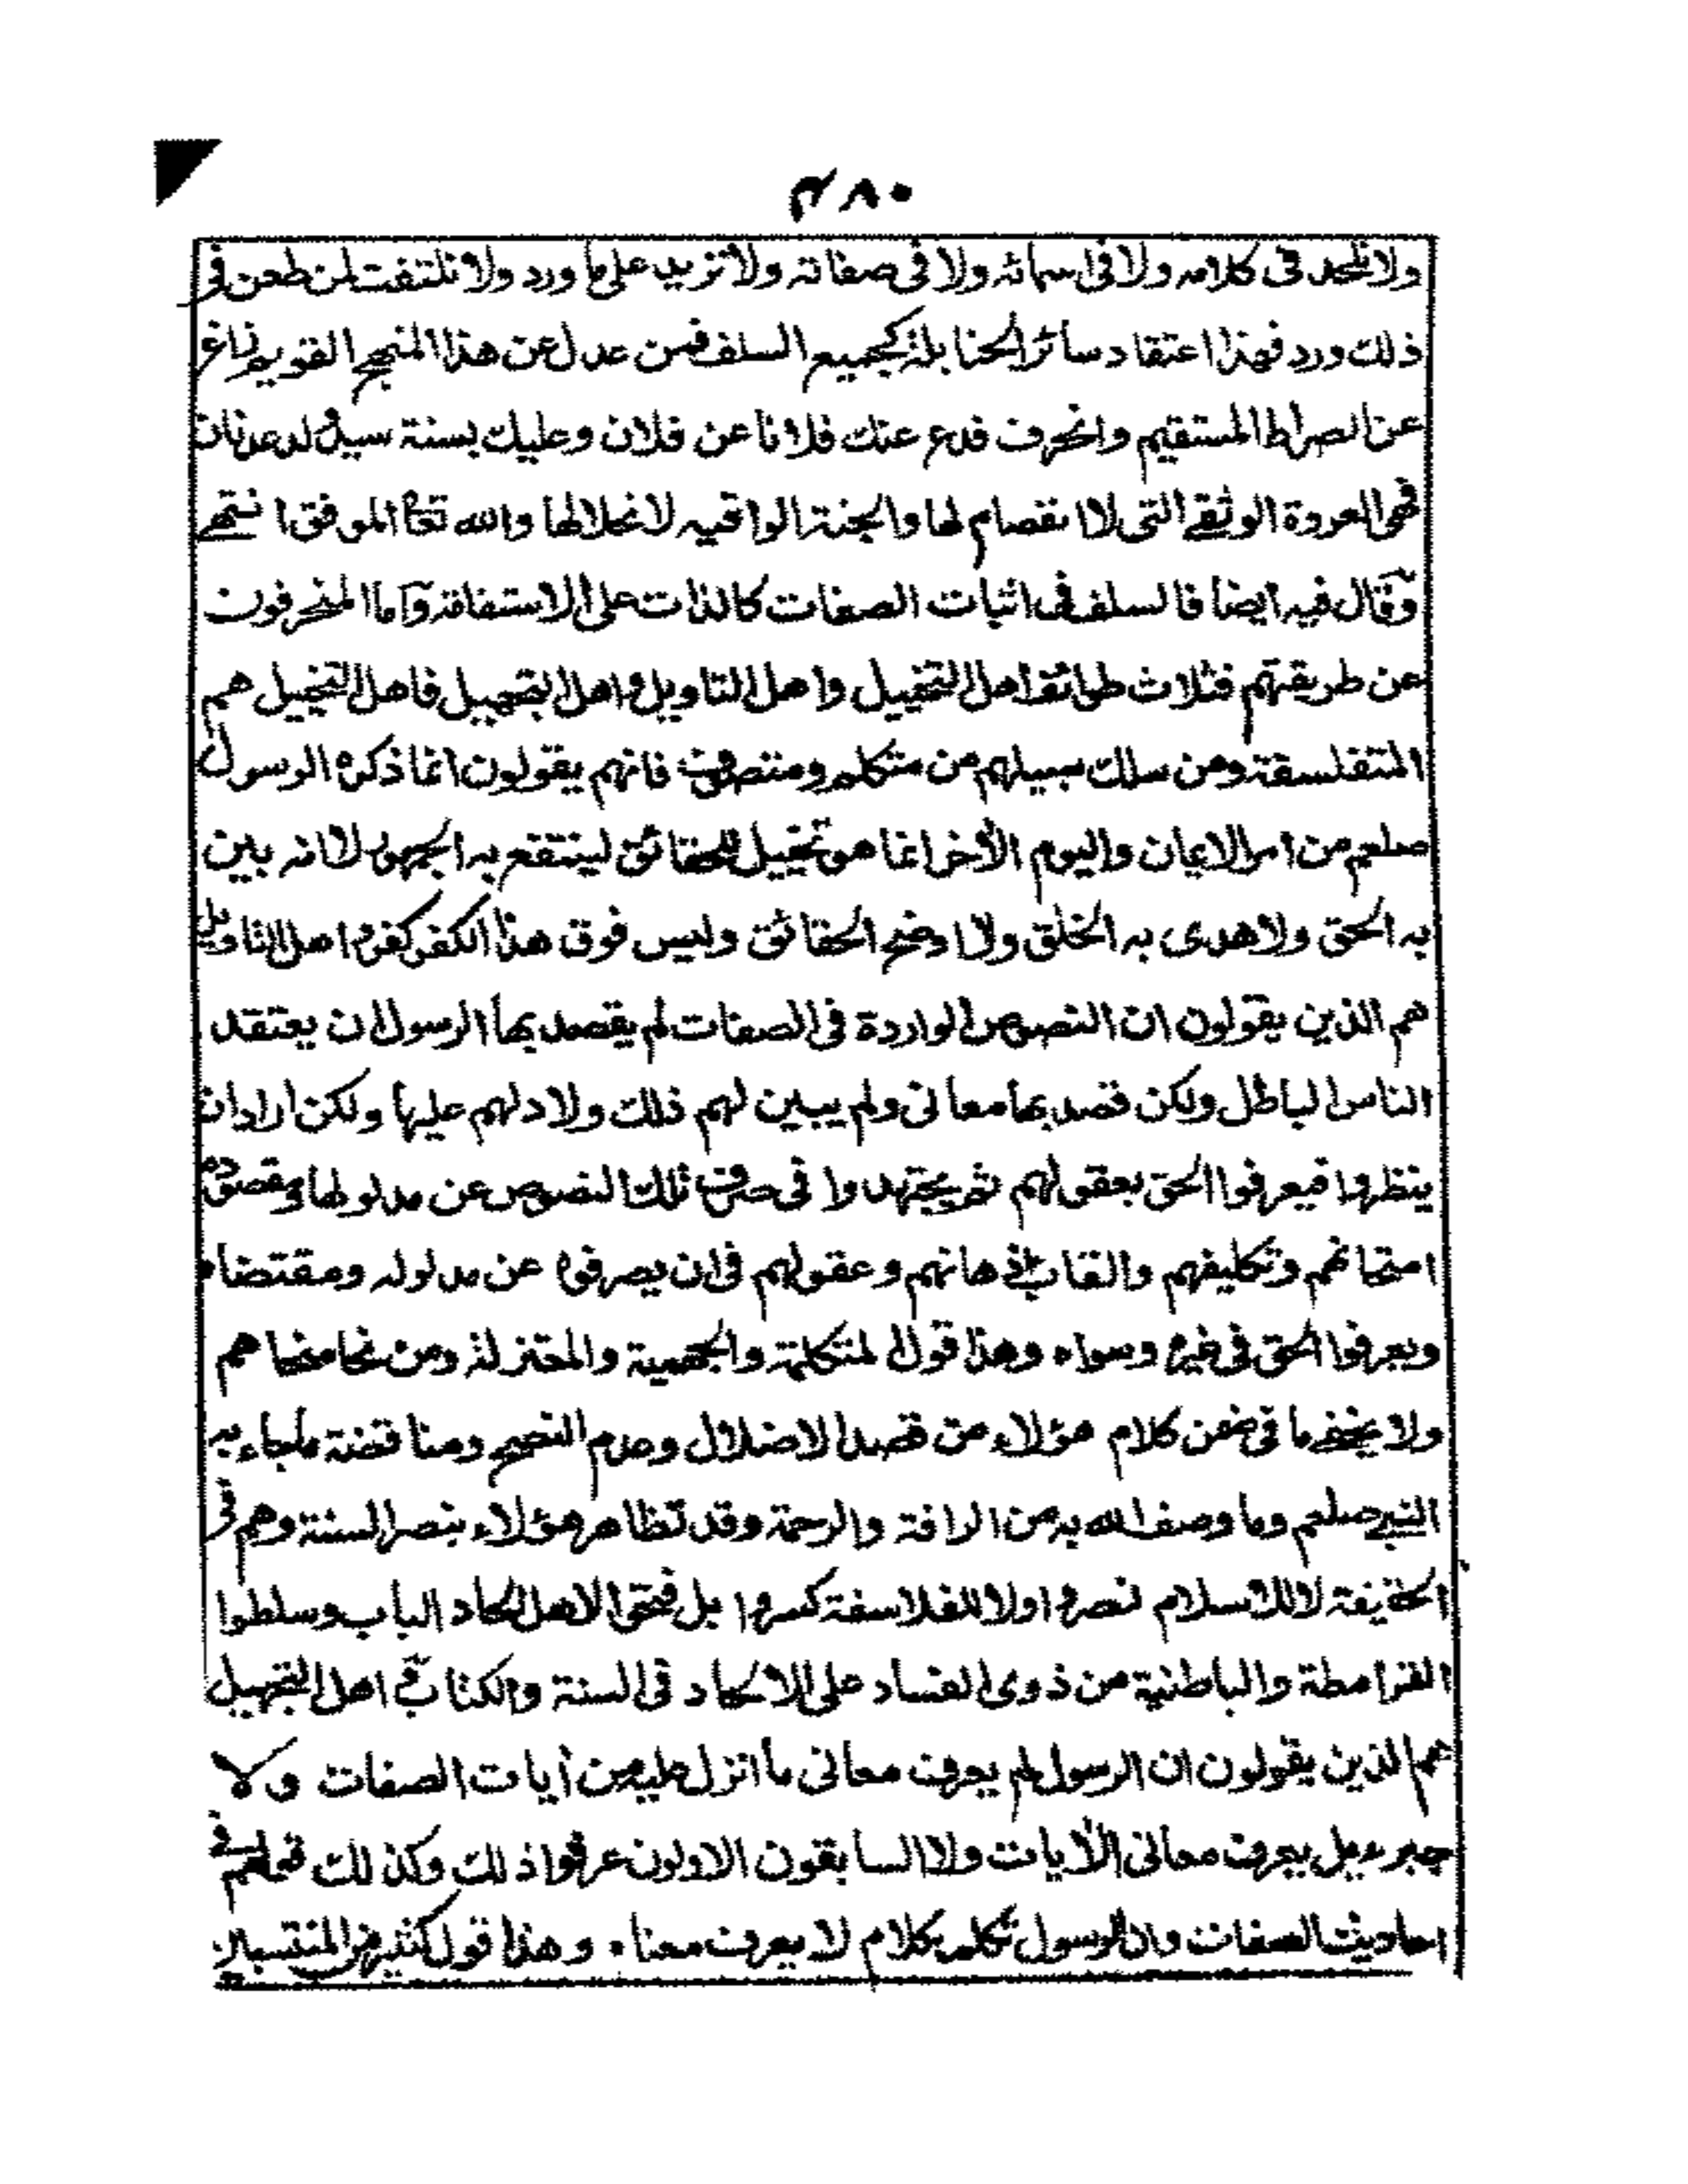 ٣٨٠
ولا نلحد فى كلامه ولا فى اسمائه ولا فى صفاته ولا نزيد على ما ورد ولا نلتفت لمن طعن فى
ذلك ورد فهذا اعتقاد سائر الحنابلة كجميع السلف فمن عدل عن هذا المنهج القويم زاغ
عن الصراط المستقيم وانحرف فدع عنك فلانا عن فلان وعليك بسنة سيد ولد عدنان
فهى العروة الوثقى التى لا انفصام لها والجنة الواقيه لا انحلالها والله تعا الموفق انتهى
وقال فيه ايضا فالسلف فى اثبات الصفات كالذات على الاستقامة واما المنحرفون
عن طريقتهم فثلاث طوائف اهل التخييل واهل التاويل واهل التجهيل فاهل التخييل هم
المتفلسفة ومن سلك سبيلهم من متكلم ومتصوف فانهم يقولون انما ذكره الرسول
صلعم من امر الايمان واليوم الأخر انما هو تخييل للحقائق لينتفع به الجمهور لا انه بين
به الحق ولا هدى به الخلق ولا اوضح الحقائق وليس فوق هذا الكفر كفر واهل التاويل
هم الذين يقولون ان النصوص الواردة فى الصفات لم يقصد بها الرسول ان يعتقد
الناس الباطل ولكن قصد بها معانى ولم يبين لهم ذلك ولا دلهم عليها ولكن اراد ان
ينظروا فيعرفوا الحق بعقولهم ثم يجتهدوا فى صرف تلك النصوص عن مدلولها ومقصوده
امتحانهم وتكليفهم واتعاب اذهانهم وعقولهم فى ان يصرفوه عن مدلوله ومقتضاه
ويعرفوا الحق فى غيره وسواه وهذا قول المتكلمة والجهمية والمعتزلة ومن نحا منحاهم
ولا يخفى ما فى ضمن كلام هؤلاء من قصد الاضلال وعدم النصح ومناقضة ما جاء به
النبى صلعم وما وصفه الله به من الرافة والرحمة وقد تظاهر هؤلاء بنصر السنة وهم فى
الحقيقة لا للاسلام نصروا ولا للفلاسفة كسروا بل فتحوا لاهل الحاد الباب وسلطوا
القرامطة والباطنية من ذوى الفساد على الالحاد فى السنة والكتاب واهل التجهيل
هم الذين يقولون ان الرسول لم يعرف معانى ما انزل عليه من أيات الصفات ولا
جبرءيل يعرف معانى الأيات ولا السابقون الاولون عرفوا ذلك وكذلك قولهم فى
احاديث الصفات وان الرسول تكلم بكلام لا يعرف معناه وهذا قول كثير من المنتسبين